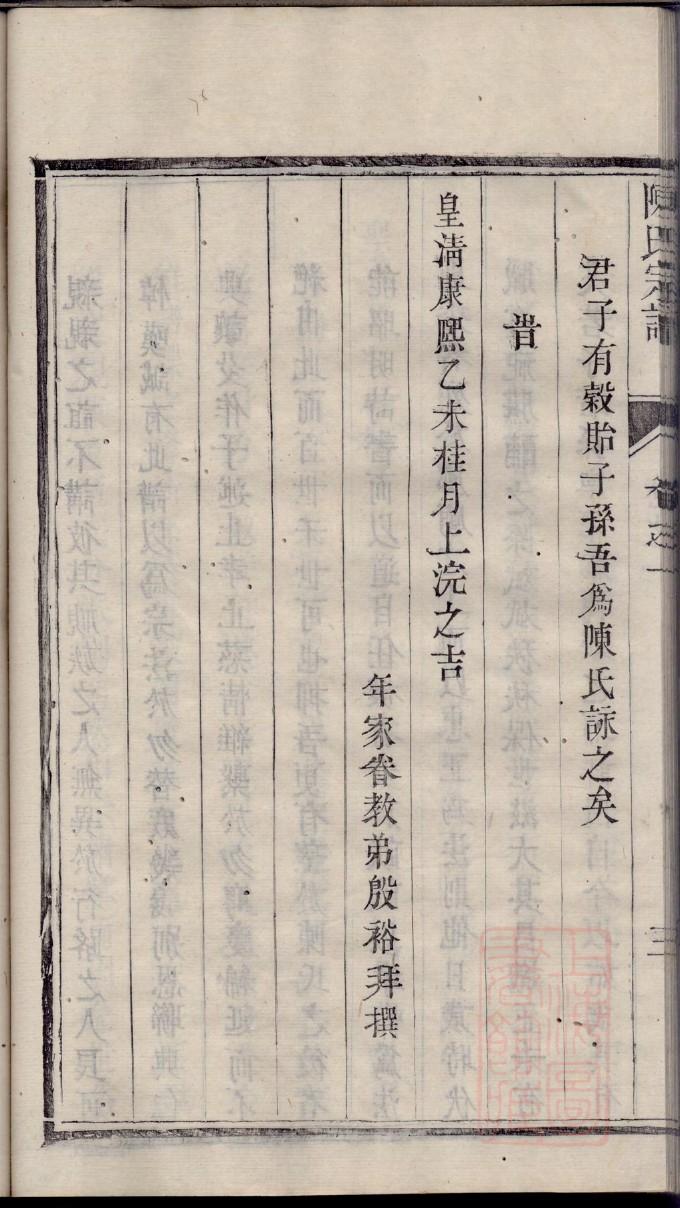 陳氏宗譜 卷之一 三
君子有穀貽子孫吾爲陳氏詠之矣
昔
皇清康熙乙未桂月上浣之吉
年家眷教弟殷裕拜撰